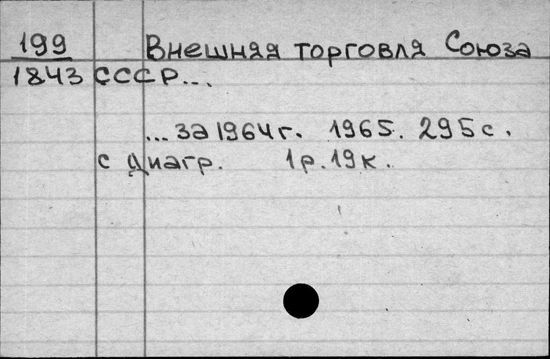 199 Внешняя торговля Союза
1843 СССР...
...за 1964г. 1965. 295с.
с диагр. 1р.19к.